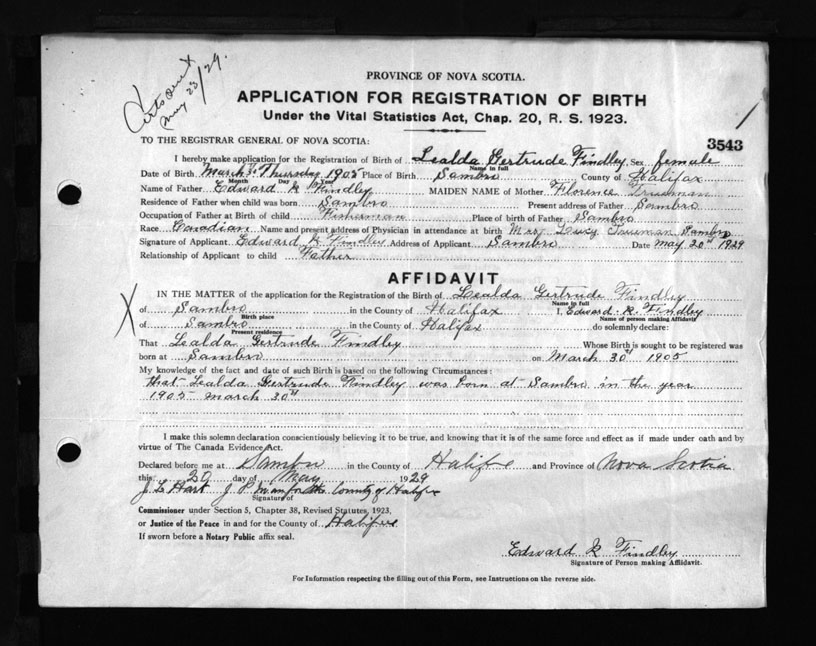 Certs sent
May 23/29.
PROVINCE OF NOVA SCOTIA.
APPLICATION FOR REGISTRATION OF BIRTH
Under the Vital Statistics Act, Chap. 20, R. S. 1923.
3543
TO THE REGISTRAR GENERAL OF NOVA SCOTIA:
I hereby make application for the Registration of Birth of Lealda Gertrude Findley Sex female
Name in full
Date of Birth March 30 Thursday 1905 Place of Birth Sambro County of Halifax
Month Day Year
Name of Father Edward R Findley MAIDEN NAME of Mother Florence Trueman
Residence of Father when child was born Sambro Present address of Father Sambro
Occupation of Father at Birth of child Fisherman Place of birth of Father Sambro
Race Canadian Name and present address of Physician in attendance at birth Mrs Lucy Trueman Sambro
Signature of Applicant Edward R Findley Address of Applicant Sambro Date May 20th 1929
Relationship of Applicant to child Father
AFFIDAVIT
IN THE MATTER of the application for the Registration of the Birth of Lealda Gertrude Findley
Name in full
X
of Sambro in the County of Halifax I, Edward R Findley
Birth place Name of person making Affidavit
of Sambro in the County of Halifax do solemnly declare:
Present residence
That Lealda Gertrude Findley Whose Birth is sought to be registered was
born at Sambro on March 30th 1905
My knowledge of the fact and date of such Birth is based on the following Circumstances:
that Lealda Gertrude Findley was born at Sambro in the year
1905 march 30th
I make this solemn declaration conscientiously believing it to be true, and knowing that it is of the same force and effect as if made under oath and by
virtue of The Canada Evidence Act.
Declared before me at Sambro in the County of Halifax and Province of Nova Scotia
this 20 day of May 1929
J L Hart J P in and for the County of Halifax
Signature of
Commissioner under Section 5, Chapter 38, Revised Statutes, 1923,
or Justice of the Peace in and for the County of Halifax
If sworn before a Notary Public affix seal.
Edward R Findley
Signature of Person making Affidavit.
For Information respecting the filling out of this Form, see Instructions on the reverse side.